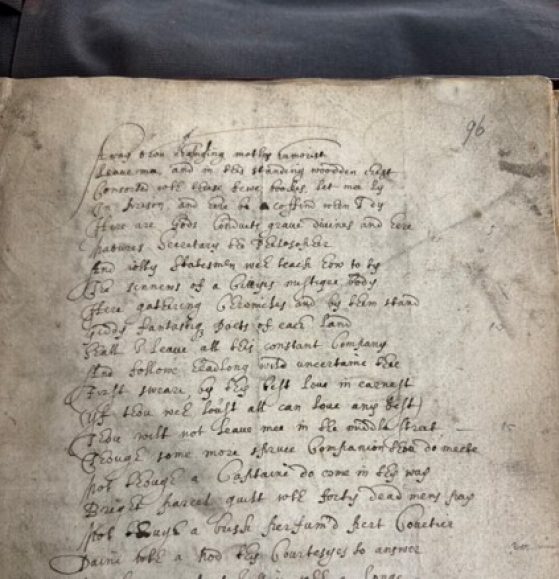 96
Away thou changling motley humorist
Leaue mee, and in this standing woodden chest
Consorted wth these fewe bookes, let mee ly
In Prison, and here be a coffind when I dy
Here are Gods Conduits graue diuines and here 5
Natures Secretary the Philosopher
And iolly Statesmen wch teach how to ty
The sinnews of a Cittyes mistique body
Here gathering Chronicles and by them stand
Giddy fantastiq Poets of each Land 10
Shall I Leaue all this constant Company
And follow headlong wild uncertaine thee
First sweare, by thy best love in earnest
(If thou wch lou'st all can love any best)
Thou wilt not leaue mee in the middle street 15
Though some more spruce Companion thou do meete
Not though a Captaine do come in thy way
Bright parcel guilt wth forty dead mens pay
Not a brisk perfum'd pert Courtier
Daine with a nod thy Courtesyes to answer